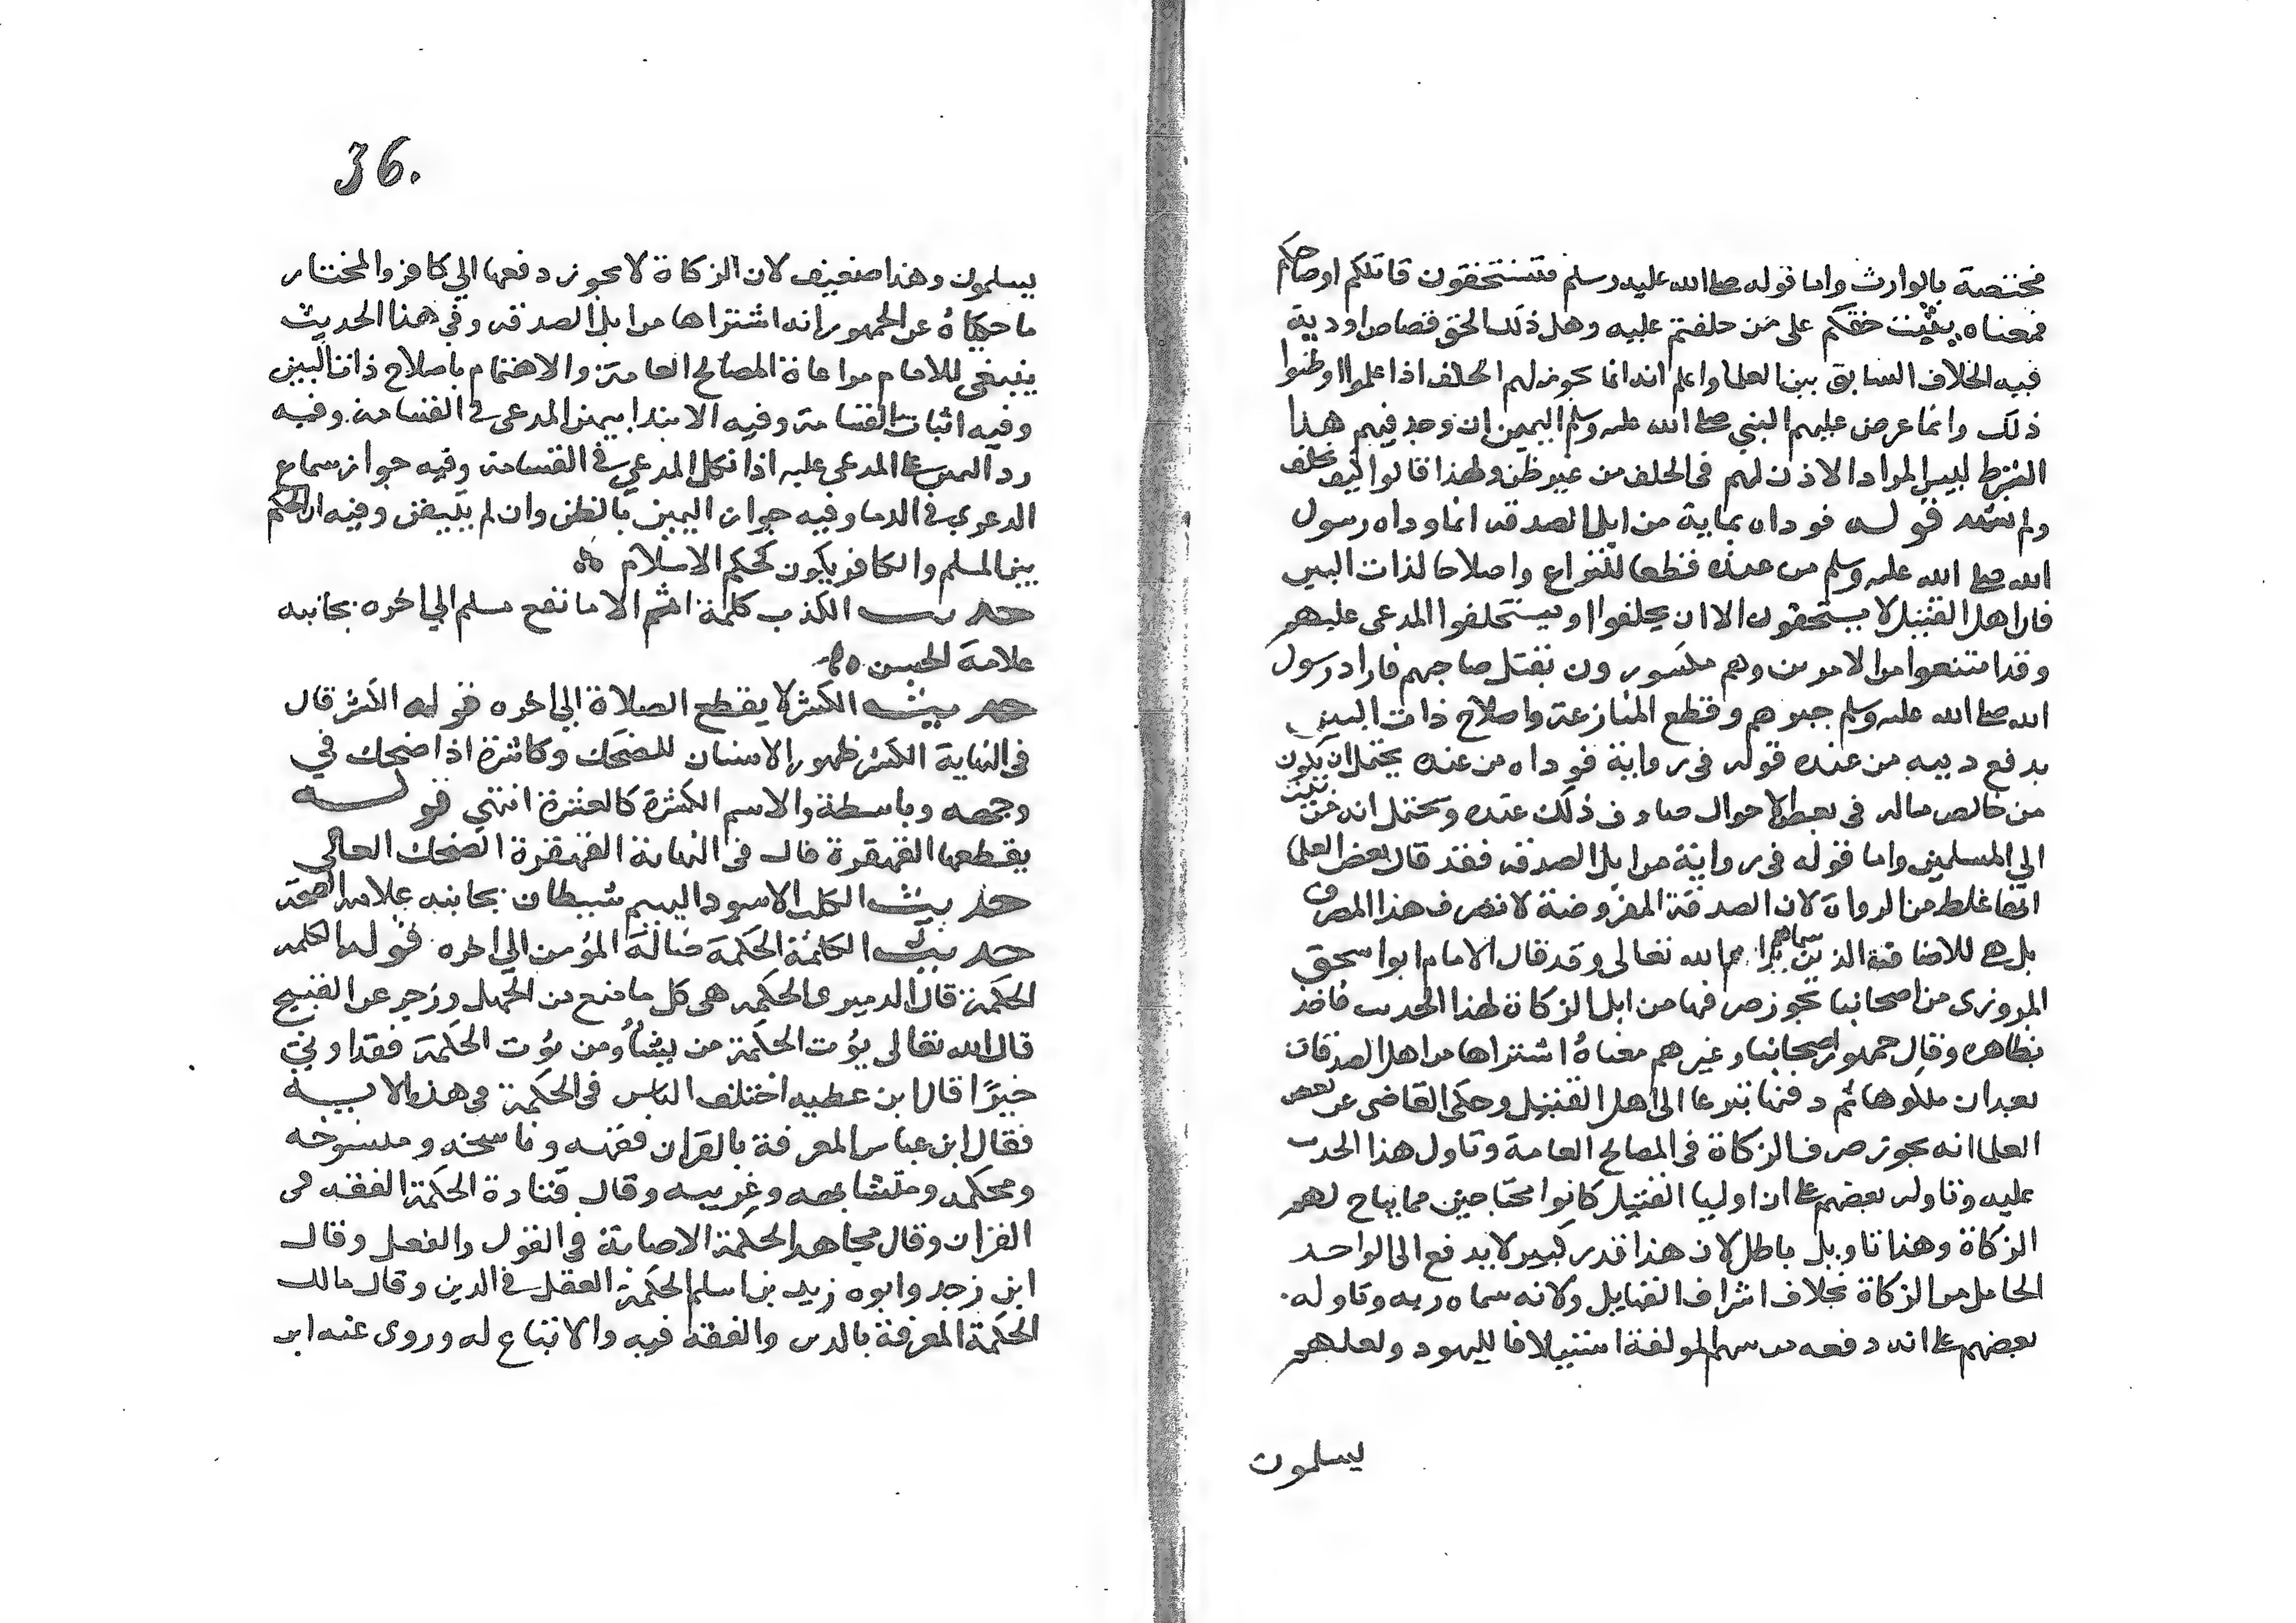 مختصة بالوارث واما قوله صلى الله عليه وسلم فتستحقون قاتلكم او صاحبكم
فمعناه يثبت حقكم على من حلفتم عليه وهل ذلك الحق قصاص او دية
فيه الخلاف السابق بين العلما واعلم انه انما يجوز لهم الحلف اذا علموا او ظنوا
ذلك وانما عرض عليهم النبي صلى الله عليه وسلم اليمين ان وجد فيهم هذا
الشرط ليس المراد الاذن لهم فى الحلف من غير ظن ولهذا قالوا كيف نحلف
ولم نشهد قوله فوداه بماية من ابل الصدقه انما وداه رسول
الله صلى الله عليه وسلم من عنده قطعا للنزاع واصلاحا لذات البين
فان اهل القتيل لا يستحقون الا ان يحلفوا او يستحلفوا المدعى عليهم
وقد امتنعوا من الامرين وهم مكسورون بقتل صاحبهم فاراد رسول
الله صلى الله عليه وسلم جبرهم وقطع المنازعة واصلاح ذات البين
بدفع ديته من عنده قوله فى رواية فوداه من عنده يحتمل ان يكون
من خالص ماله فى بعض الاحوال صادف ذلك عنده ويحتمل انه من بيت
الي المسلمين واما قوله فى رواية من ابل الصدقه فقد قال بعض العلما
انها غلط من الرواة لان الصدقة المفروضة لا تصرف هذا المصرف
بل هي للاصناف الذين سماهم الله تعالى وقد قال الامام ابو اسحق
المروزى من اصحابنا يجوز صرفها من ابل الزكاة لهذا الحديث فاخذ
بظاهره وقال جمهور اصحابنا وغيرهم معناهُ اشتراها من اهل الصدقات
بعد ان ملكوها ثم دفعها تبرعا الى اهل القتيل وحكى القاضى عن بعض
العلما انه يجوز صرف الزكاة فى المصالح العامة وتاول هذا الحديث
عليه وتاوله بعضهم على ان اوليا القتيل كانوا محتاجين مما يباح لهم
الزكاة وهذا تاويل باطل لان هذا قدر كبير لا يدفع الى الواحد
الحامل من الزكاة بخلاف اشراف القبايل ولانه سماه دية وتاوله
بعضهم على انه دفعه من سهم المولفة استيلافا لليهود ولعلهم
يسلمون
36.
يسلمون وهذا ضعيف لان الزكاة لا يجوز دفعها الي كافر والمختار
ما حكياهُ عن الجمهور انه اشتراها من ابل الصدقه وفي هذا الحديث
ينبغي للامام مراعاة المصالح العامة والاهتمام باصلاح ذات البين
وفيه اثبات القسامة وفيه الابتدا بيمين المدعى في القسامة وفيه
رد اليمين على المدعى عليه اذا نكل المدعي في القسامة وفيه جواز سماع
الدعوي في الدما وفيه جواز اليمين بالظن وان لم يتيقن وفيه ان الحكم
بين المسلم والكافر يكون بحكم الاسلام
حديث الكذب كلمة اثم الا ما نفع مسلم الي اخره بجانبه
علامة الحسن
حديث الكشر لا يقطع الصلاة الي اخره قوله الكشر قال
فى النهاية الكشر ظهور الاسنان للضحك وكاشره اذا ضحك في
وجهه وباسطه والاسم الكشرة كالعشرة انتهي قوله
يقطعها القهقرة قال فى النهاية القهقرة الضحك العالي
حديث الكلب الاسود البهيم شيطان بجانبه علامة الصحة
حديث الكلمة الحكمة ضالة المؤمن الي اخره قوله الكلمه
الحكمة قال الدميرى الحكمه هى كل ما منع من الجهل وزجر عن القبيح
قال الله تعالى يؤت الحكمة من يشأ ومن يؤت الحكمة فقد اوتي
خيرًا قال ابن عطيه اختلف الناس فى الحكمة في هذه الايه
فقال ابن عباس المعرفة بالقران فقهه وناسخه ومنسوخه
ومحكمه ومتشابهه وغريبه وقال قتادة الحكمة الفقه فى
القران وقال مجاهد الحكمة الاصابة في القول والفعل وقال
ابن زيد وابوه زيد بن اسلم الحكمة العقل في الدين وقال مالك
الحكمة المعرفة بالدين والفقه فيه والاتباع له وروى عنه ابن